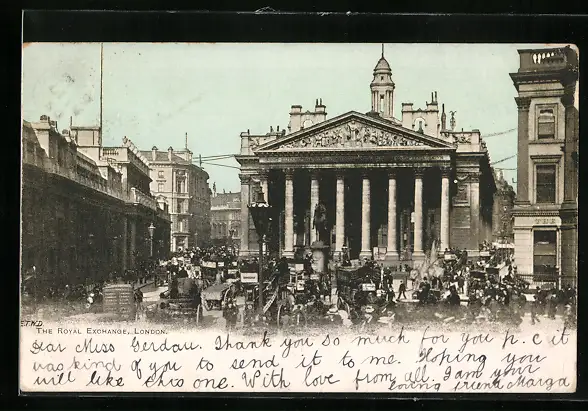 E.T.W.D.
THE ROYAL EXCHANGE, LONDON.
Dear Miss Gerdau. Thank you so much for you p. c it
was kind of you to send it to me. Hoping you
will like this one. With love from all. I am your
loving friend Marga
THE